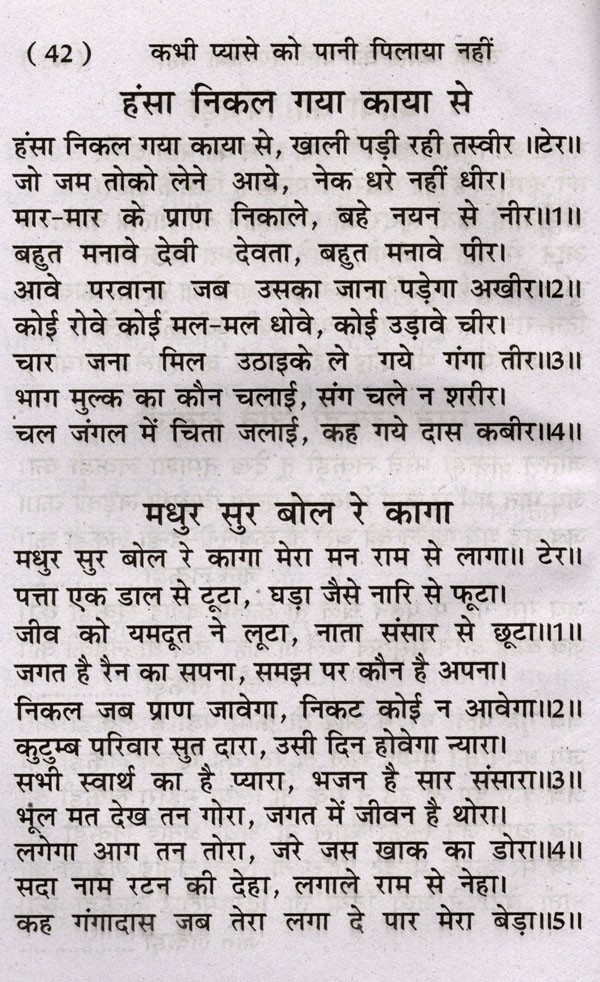 ( 42 ) कभी प्यासे को पानी पिलाया नहीं
हंसा निकल गया काया से
हंसा निकल गया काया से, खाली पड़ी रही तस्वीर ॥टेर॥
जो जम तोको लेने आये, नेक धरे नहीं धीर।
मार-मार के प्राण निकाले, बहे नयन से नीर॥1॥
बहुत मनावे देवी देवता, बहुत मनावे पीर।
आवे परवाना जब उसका जाना पड़ेगा अखीर॥2॥
कोई रोवे कोई मल-मल धोवे, कोई उड़ावे चीर।
चार जना मिल उठाइके ले गये गंगा तीर॥3॥
भाग मुल्क का कौन चलाई, संग चले न शरीर।
चल जंगल में चिता जलाई, कह गये दास कबीर॥4॥
मधुर सुर बोल रे कागा
मधुर सुर बोल रे कागा मेरा मन राम से लागा॥ टेर॥
पत्ता एक डाल से टूटा, घड़ा जैसे नारि से फूटा।
जीव को यमदूत ने लूटा, नाता संसार से छूटा॥1॥
जगत है रैन का सपना, समझ पर कौन है अपना।
निकल जब प्राण जावेगा, निकट कोई न आवेगा॥2॥
कुटुम्ब परिवार सुत दारा, उसी दिन होवेगा न्यारा।
सभी स्वार्थ का है प्यारा, भजन है सार संसारा॥3॥
भूंल मत देख तन गोरा, जगत में जीवन है थोरा।
लगेगा आग तन तोरा, जरे जस खाक का डोरा॥4॥
सदा नाम रटन की देहा, लगाले राम से नेहा।
कह गंगादास जब तेरा लगा दे पार मेरा बेड़ा॥5॥